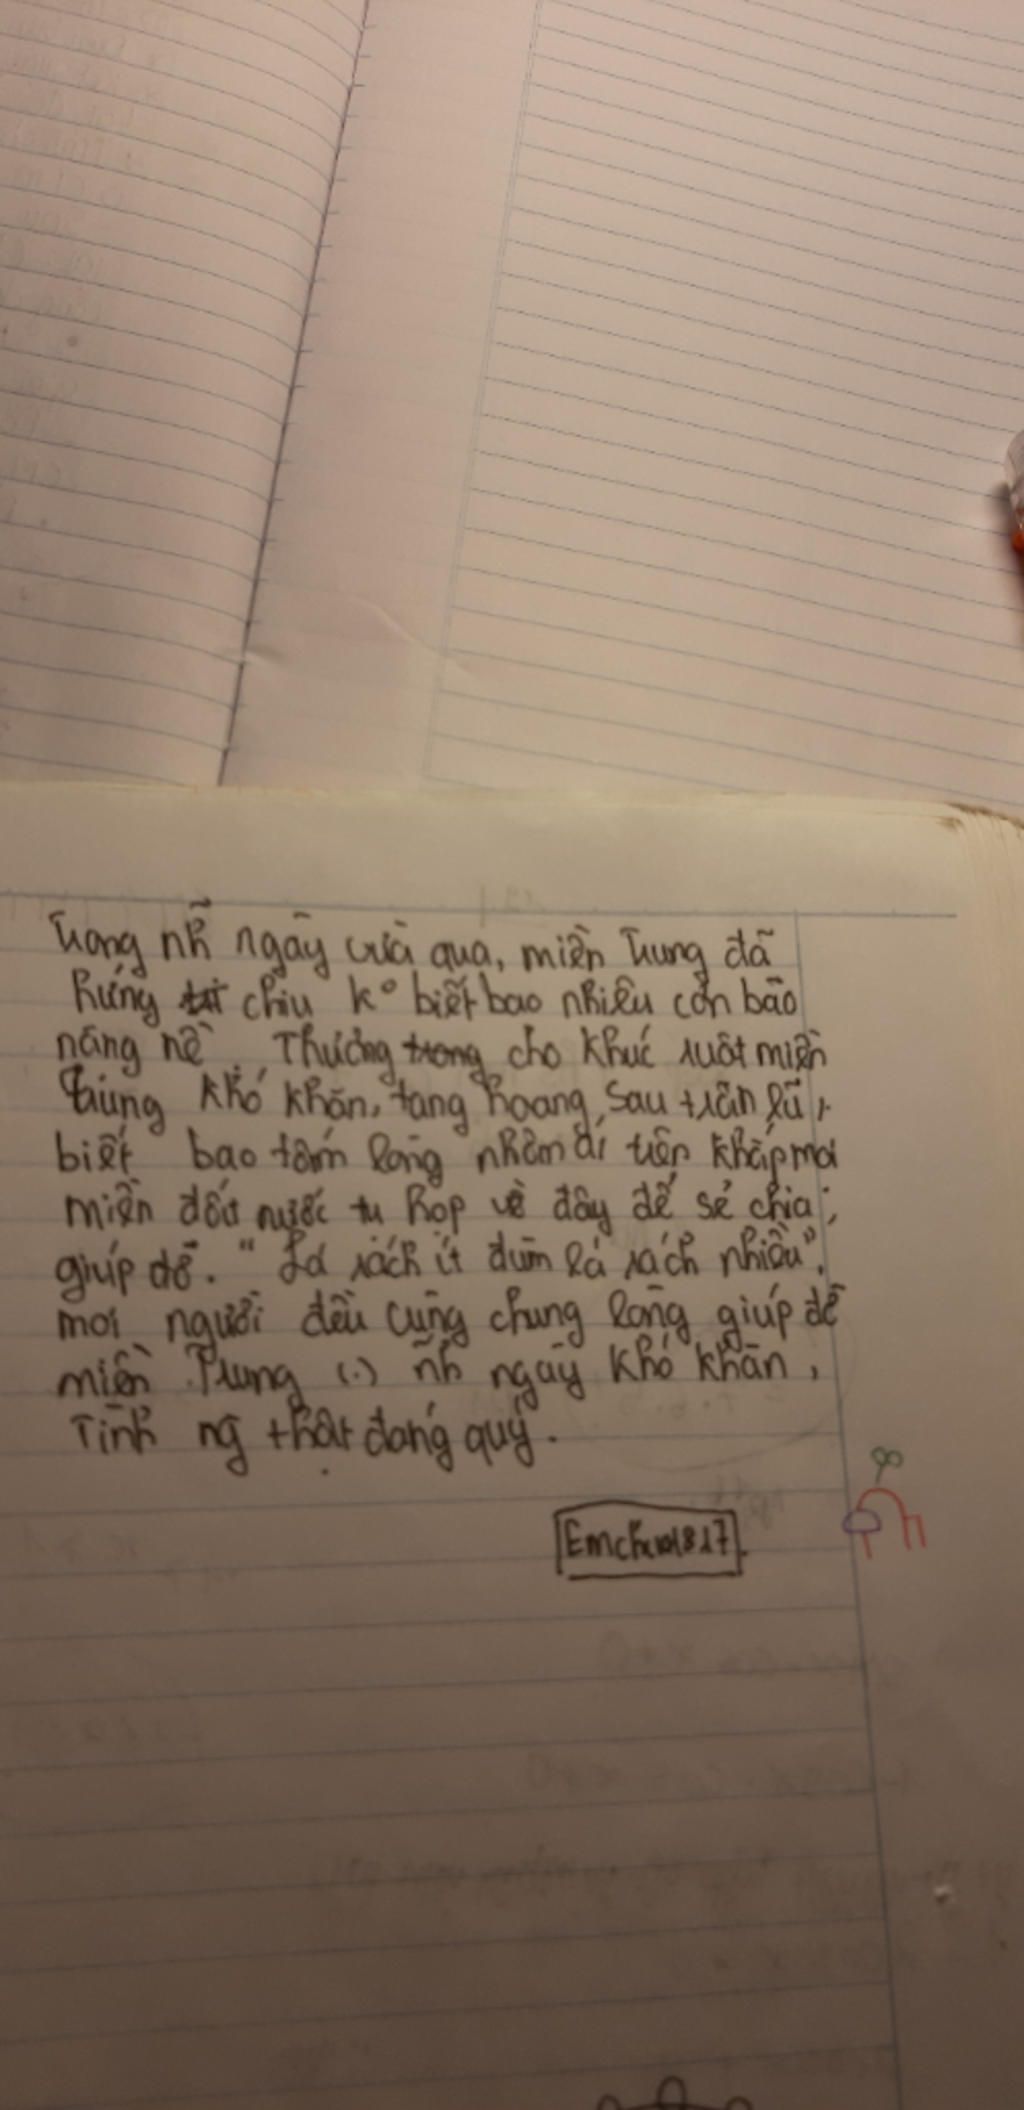 Trong nh~ ngày vừa qua, miền Trung đã
hứng chịu k° biết bao nhiêu cơn bão
nặng nề. Thương cho khúc ruột miền
Trung khó khăn, tang hoang, sau trận lũ,
biết bao tấm lòng nhâm ái trên khắp mọi
miền đất nước tụ họp về đây để sẻ chia,
giúp đỡ. "Lá rách ít đùm lá rách nhiều",
mọi người đều cùng chung lòng giúp đỡ
miền Trung (.) ~nh ngày khó khăn,
Tình ng~ thật đáng quý.